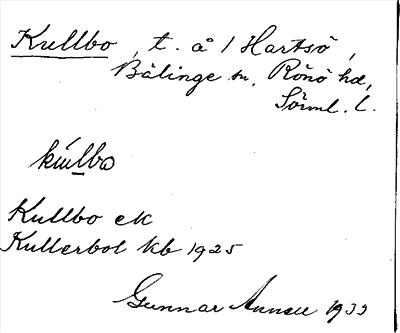 Kullbo, t. å / Hartsö,
Bälinge sn. Rönö hd,
Sörml. l.
kúllbo
Kullbo ek
Kullerbol kb 1925
Gunnar 1933